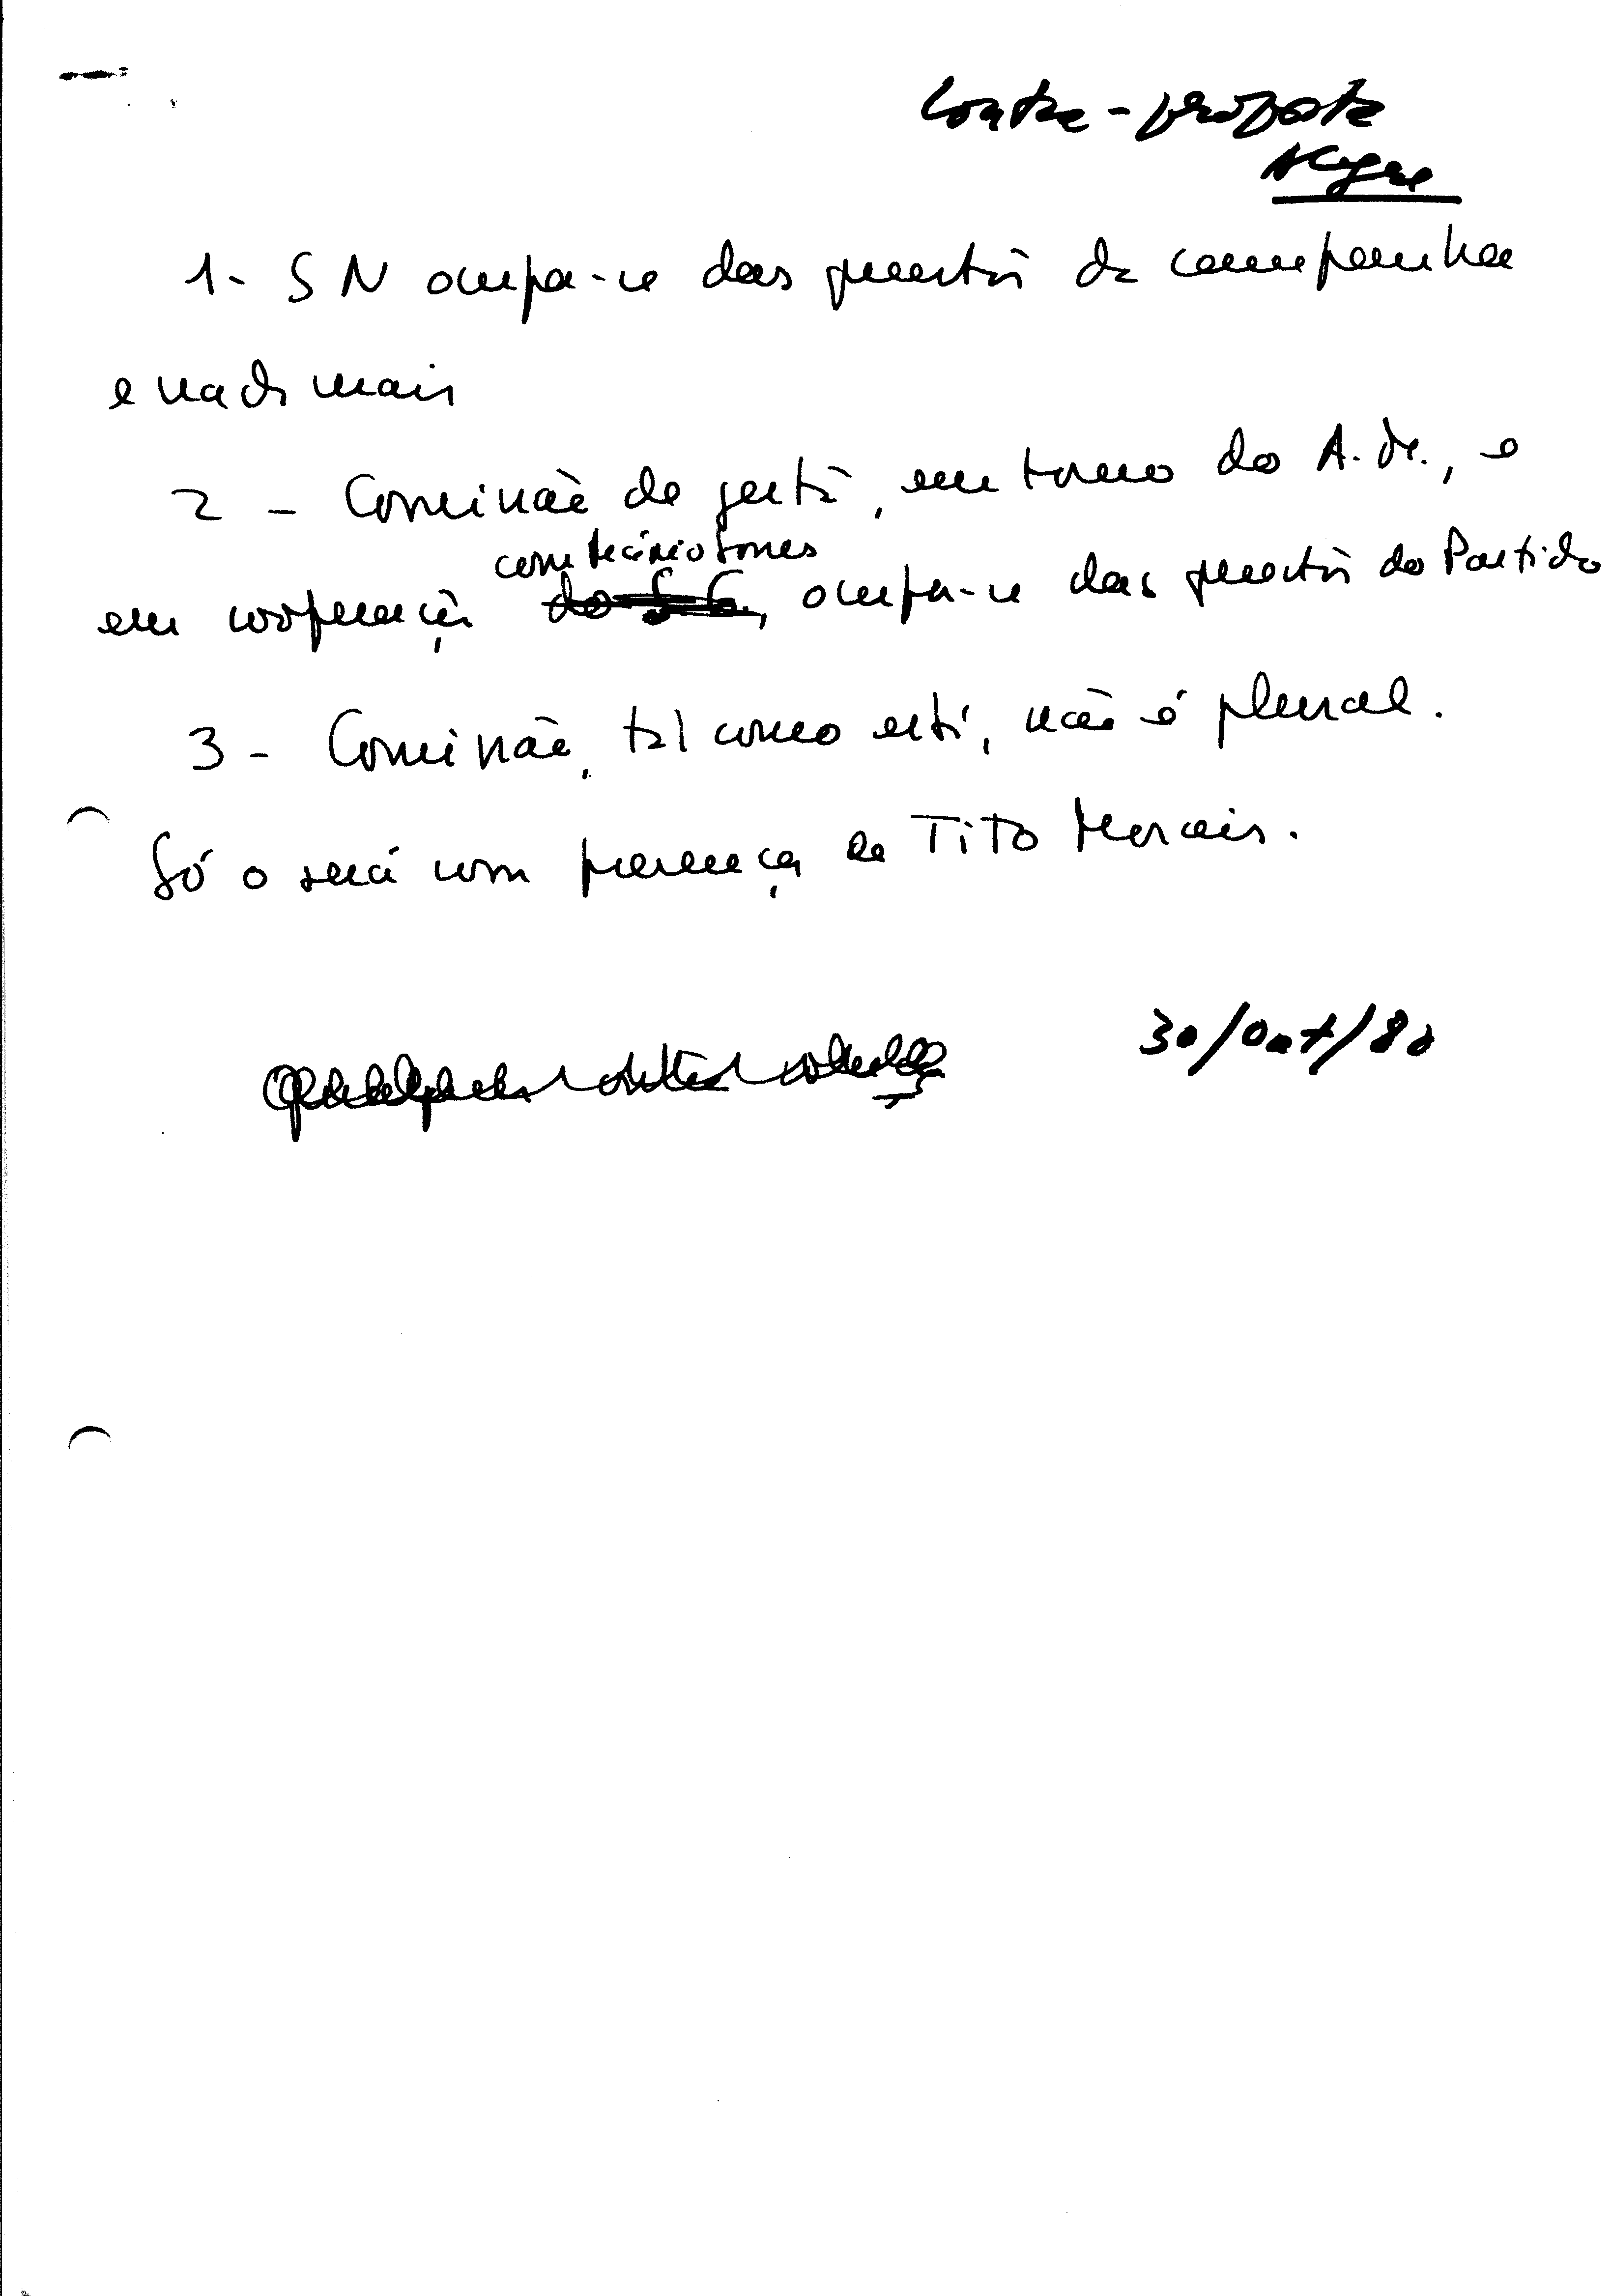 Contra-proposta
Alegre
1- SN ocupa-se das questões da campanha
e nada mais
2 - Comissão de gestão, em torno do A.M., e
com Mário Soares
em cooperação do S.G., ocupa-se das questões do Partido
3 - Comissão, tal como está, não é plural.
Só o será com presença de Tito Morais.
30/Out/80